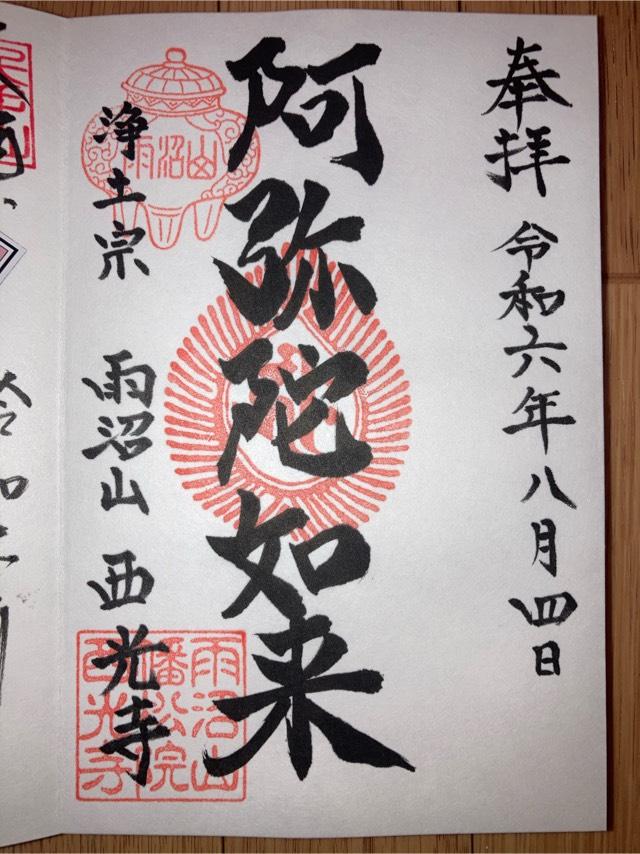 奉拝 令和六年八月四日
阿弥陀如来
雨沼山
浄土宗 雨沼山 西光寺
雨沼山
幡松院
西光寺